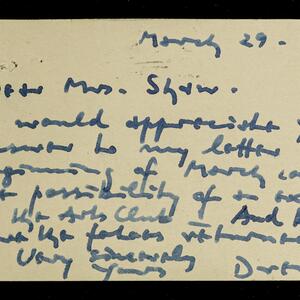 March 29.
ear Mrs. Shaw.
would appreciate
swer to my letter
ginning of March
possibility of a ex
the Arts Club And
the fotos returned
Very sincerely
Yours